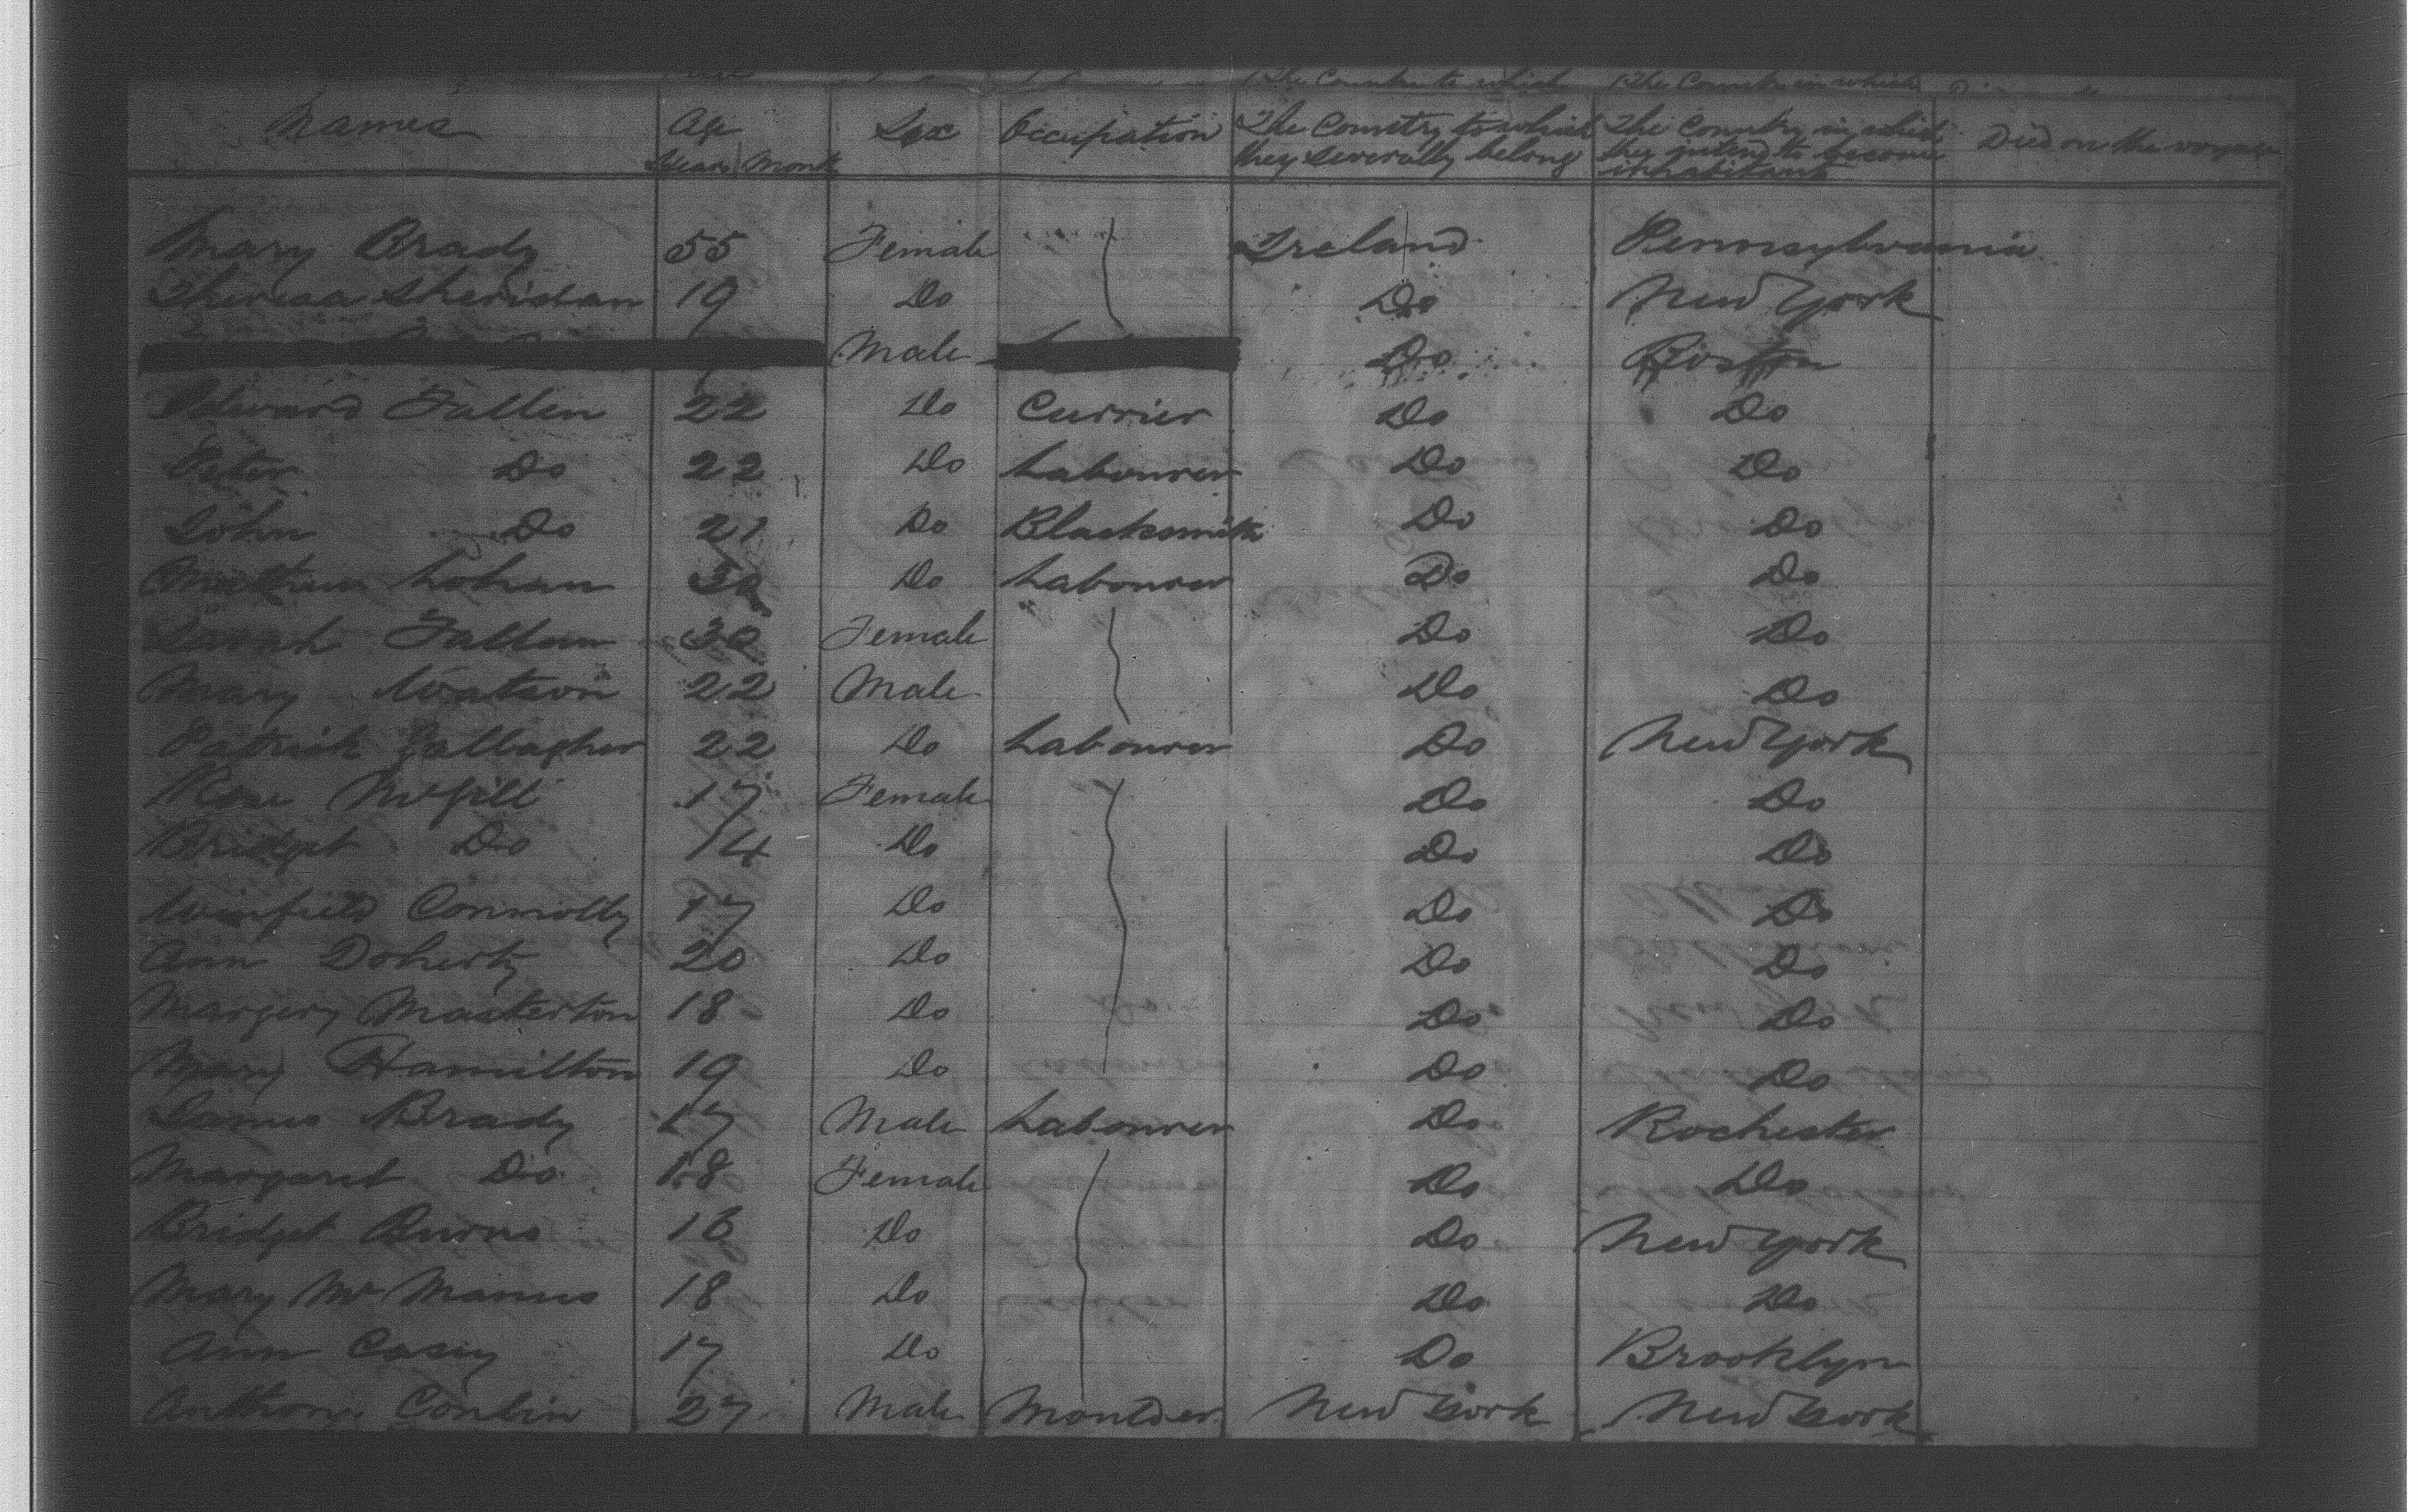 Names Age Sex Occupation The Country to which The Country in which Died on the voyage
Years Month they severally belong they intend to become
inhabitants
Mary Brady 55 Female Ireland Pennsylvania
Theresa Sheridan 19 Do Do New York
Male Do Boston
Edward Fallen 22 Do Currier Do Do
Peter Do 22 Do Labourer Do Do
John Do 21 Do Blacksmith Do Do
Lohan Do Labourer Do Do
Sarah Fallen 30 Female Do Do
Mary Watson 22 Male Do Do
Patrick Gallagher 22 Do Labourer Do New York
Rose McGill 17 Female Do Do
Bridget Do 14 Do Do Do
Winfield Connolly 17 Do Do Do
Ann Doherty 20 Do Do Do
Margery Masterton 18 Do Do Do
Mary Hamilton 19 Do Do Do
James Brady 17 Male Labourer Do Rochester
Margaret Do 18 Female Do Do
Bridget Burns 16 Do Do New York
Mary McManus 18 Do Do Do
Ann Casey 17 Do Do Brooklyn
Anthony Conlin 27 Male Moulder New York New York